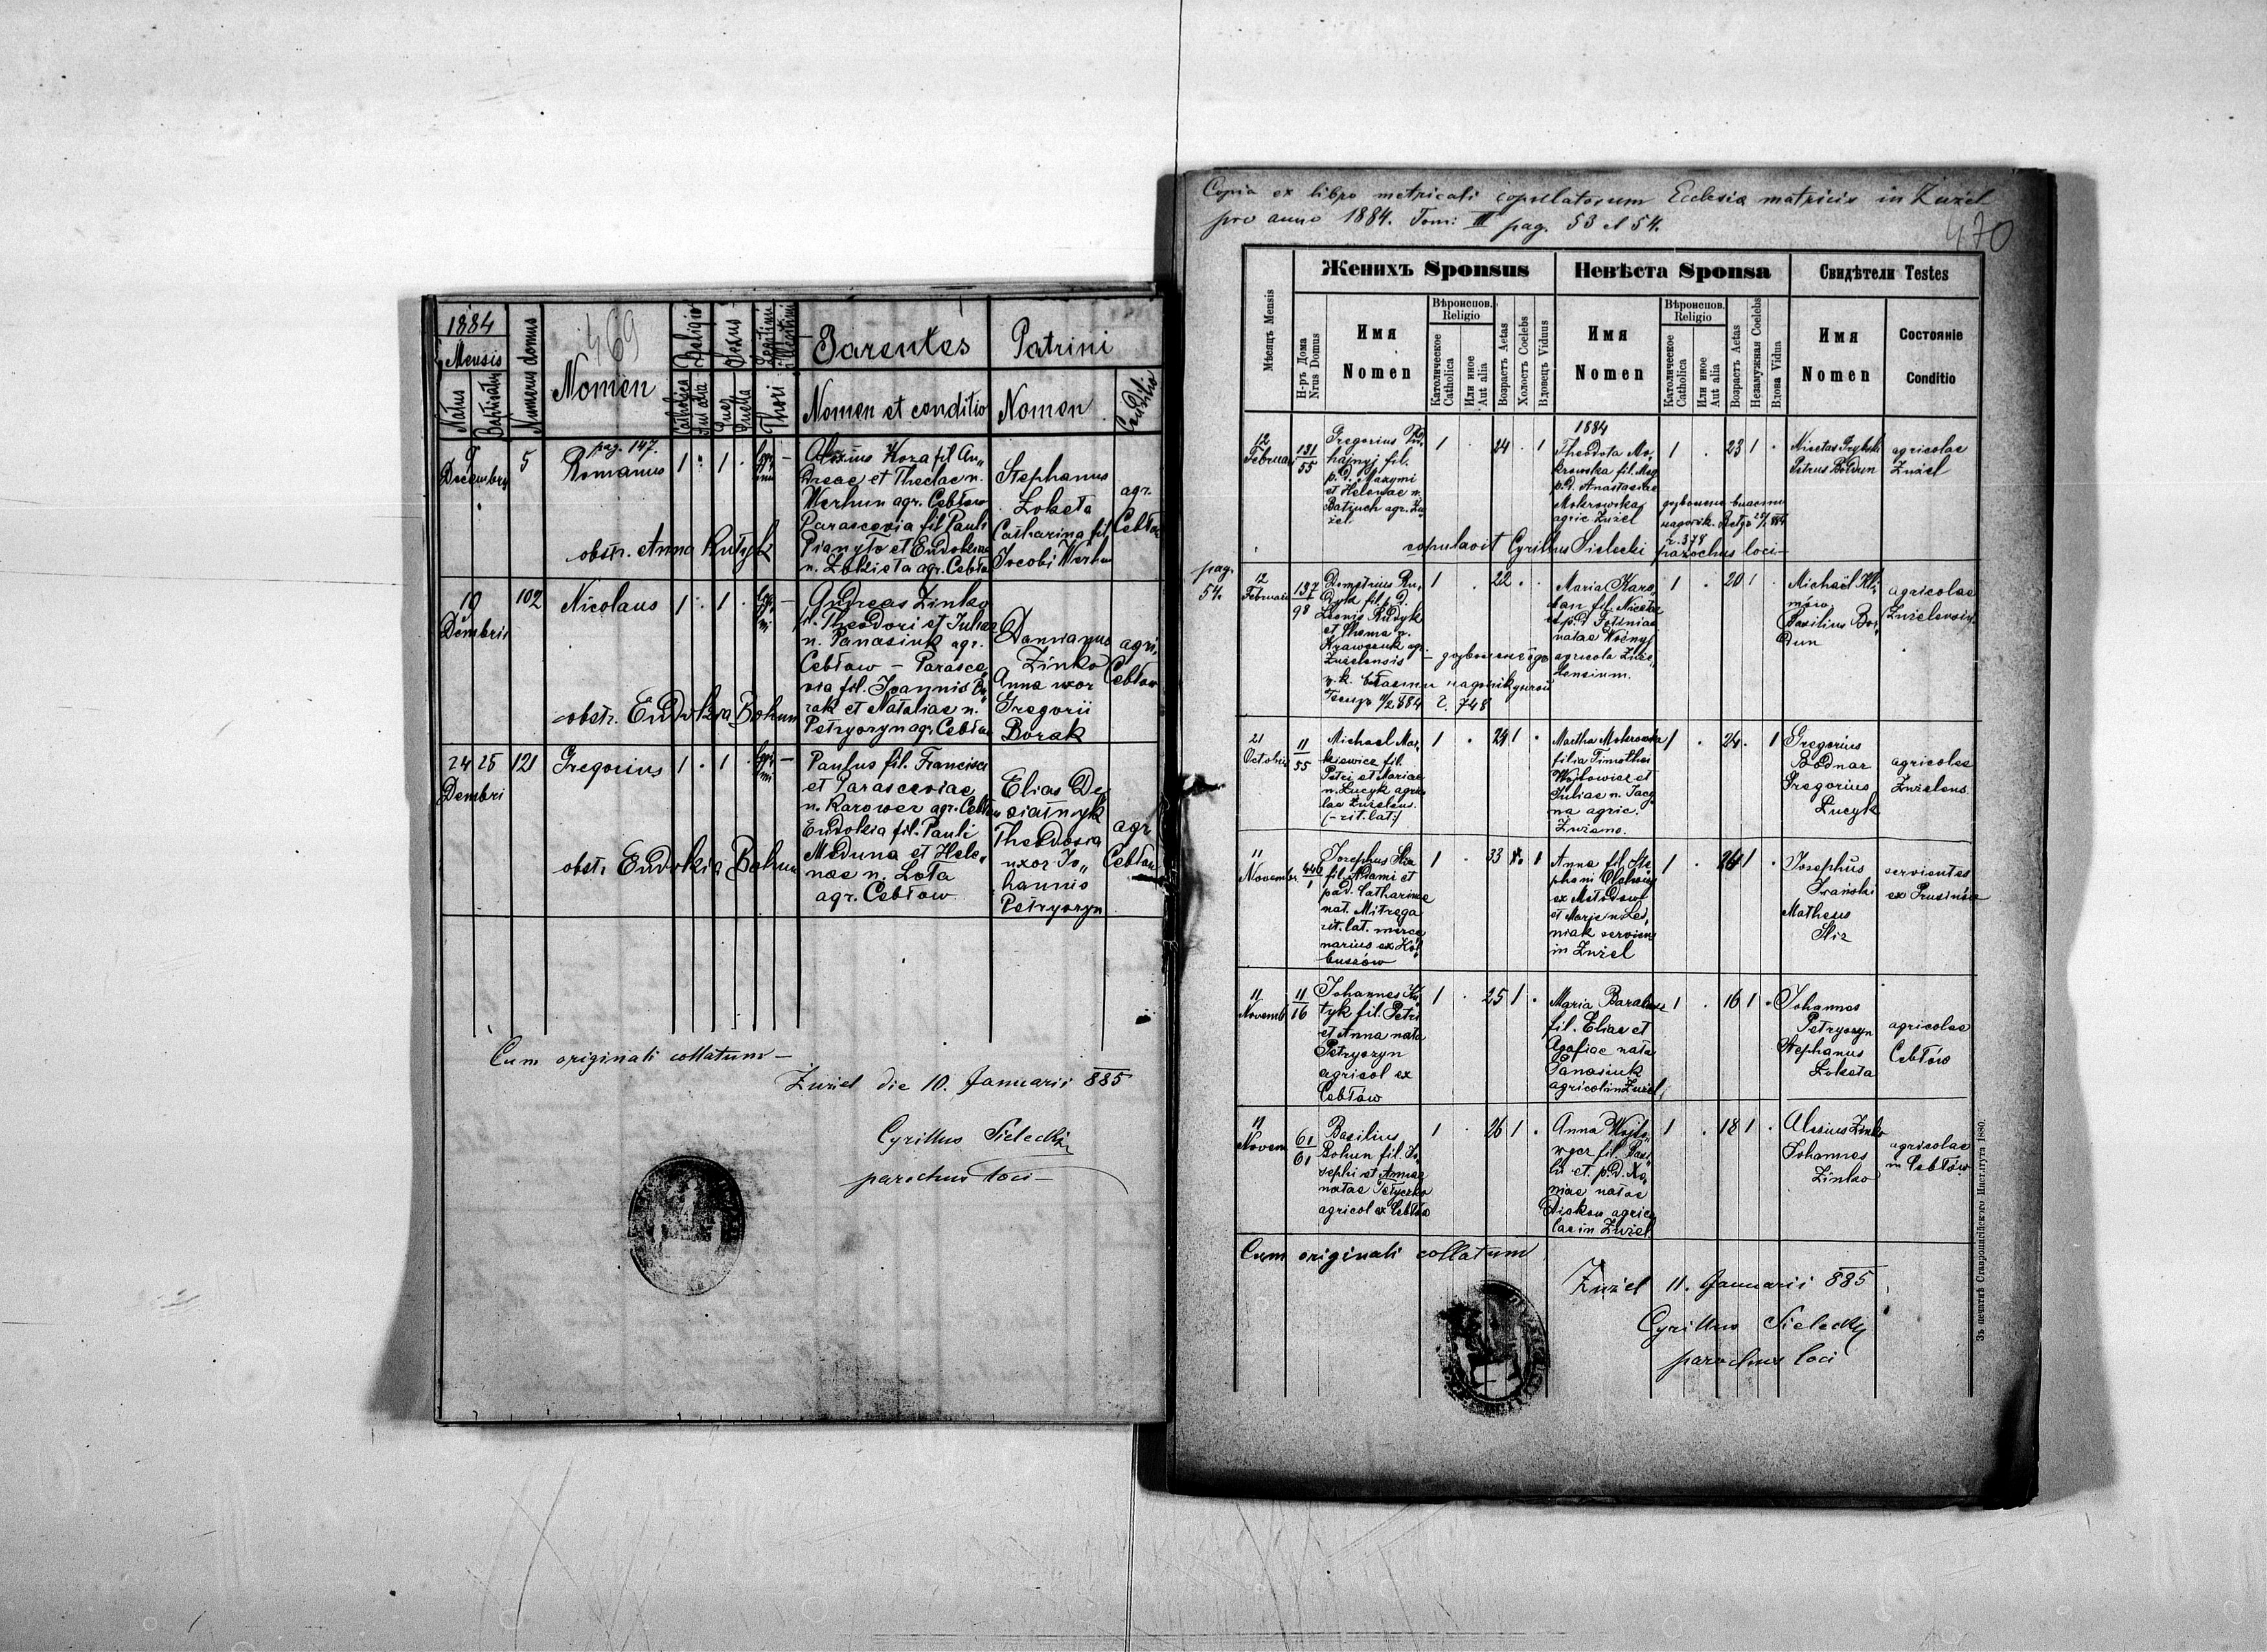 1884
Mensis
Natus
Baptisatus
Numerus domus
469
Nomen
Religio
Catholica
Aut alia
Sexus
Puer
Puella
Thori
Legitimi
Illegitimi
Parentes
Nomen et conditio
Patrini
Nomen
Conditio
9
Decembris
5
pag. 147.
Romanus
1 . 1 .
Alexius Koza fil An„
dreae et Theclae n.
Werhun agr. Cebłow
Parascevia fil Pauli
Pianyło et Eudokiae
n. Lokieta agr. Cebłow
Stephanus
Loketa
Catharina fil.
Jocobi Werhun
agr.
Cebłow
obstr. Anna Kutyk
19
Dembris
102
Nicolaus
1 . 1 .
Andreas Zinko
f. Theodori et Juliae
n. Panasiuk agr.
Cebłow – Parasce„
via fil. Joannis Bo„
rak et Nataliae n.
Petryoryn agr. Cebłow
Damianus
Zinko
Anna uxor
Gregorii
Borak
agri.
Cebłow
obstr. Eudokia Bohun
24 25
Dembri
121
Gregorius
1 . 1 .
Paulus fil. Francisci
et Parasceviae
n. Karower agr. Cebłow
Eudokia fil. Pauli
Meduna et Hele„
nae n. Lota
agr. Cebłow
Elias De
siatnyk
Theodosia
uxor Jo„
hannis
Petryoryn
agr
Cebłow
obstr. Eudokia Bohun
Cum originali collatum –
Zuziel die 10. Januarii 885
Cyrillus Sielecki
parochus loci –
Copia ex libro metricali copulatorum Ecclesiæ matricis in Żużel
pro anno 1884. Tom: III pag. 53 et 54.
470
Мѣсяцъ Mensis
Женихъ Sponsus
Невѣста Sponsa
Свидѣтели Testes
Н-ръ Дома
Nrus Domus
Имя
Nomen
Вѣроиспов.
Religio
Католическое
Catholica
Или иное
Aut alia
Возрастъ Aetas
Холостъ Coelebs
Вдовецъ Viduus
Имя
Nomen
Вѣроиспов.
Religio
Католическое
Catholica
Или иное
Aut alia
Возрастъ Aetas
Незамужная Coelebs
Вдова Vidua
Имя
Nomen
Состоянie
Conditio
12
Februar
131
55
Gregorius
hajnyj fil.
p.d. Maxymi
et Helenae n.
Batiuch agr. Żu
żel
1 . 24 . 1
1884
Theodota Mo„
krowska fil.
p.d. Anastasiae
Mokrowska
agric Żużel
1 . 23 1 .
Petrus Boldun
agricolae
Żużel
copulavit Cyrillus Sielecki parochus loci –
pag.
54.
12
Februar
137
98
Demetrius Ru„
dyk fil. p.d.
Leonis Rudyk
n.
Krawczuk agr.
Żużelensis
1 . 22 . .
Maria Karo„
ban fil. Nicetae
et p.d.
natae Woźnyj
agricola Żuże„
lensium.
1 . 20 1 .
Michaël Kli„
mów
Basilius Bol„
dun
agricolae
884
748
21
Octobris
11
55
Michael Mac„
kiewicz fil.
Petri et Mariae
n. Łucyk agrico
lae Żużelens.
(– rit. lat:)
1 . 24 1 .
Martha Mokrowska
filia Timothei
Wojtowicz et
Juliae n. Jacy„
na agric.
1 . 24 . 1
Gregorius
Bodnar
Gregorius
Łucyk
agricolae
Żużelens
11
Novembr.
Josephus Śliz
fil. Adami et
p.d. Catharinae
nat. Mitręga
rit. lat. merce
narius ex Kol„
buszów
1 . 33 1
Anna fil. Ste„
phani
et Marje n. Leś„
niak serviens
in Żużel
1 . 24 1 .
Josephus
Matheus
Śliz
servientes
11
Novemb
11
16
Johannes Ku„
tyk fil. Petri
et Anna nata
Petryoryn
agricol ex
Cebłow
1 . 25 1 .
Maria Barabasz
fil. Eliae et
Agafiae nata
Panasiuk
agricol in Żużel
1 . 16 1 .
Johannes
Petryoryn
Stephanus
Loketa
agricolae
Cebłów
11
Novem
61
61
Basilius
Bohun fil. Jo„
sephi et Annae
natae Tetyczko
agricol ex Cebłow
1 . 26 1 .
Anna Wojto„
wycz fil. Basi„
lii et p.d. Xe„
niae natae
Diskow agrico
lae in Żużel
1 . 18 1 .
Alexius Zinko
Johannes
Zinko
agricolae
in Cebłów
Cum originali collatum
Żużel 11. Januarii 885
Cyrillus Sielecki
parochus loci
Зъ печатнѣ Ставропигійского Института 1880.